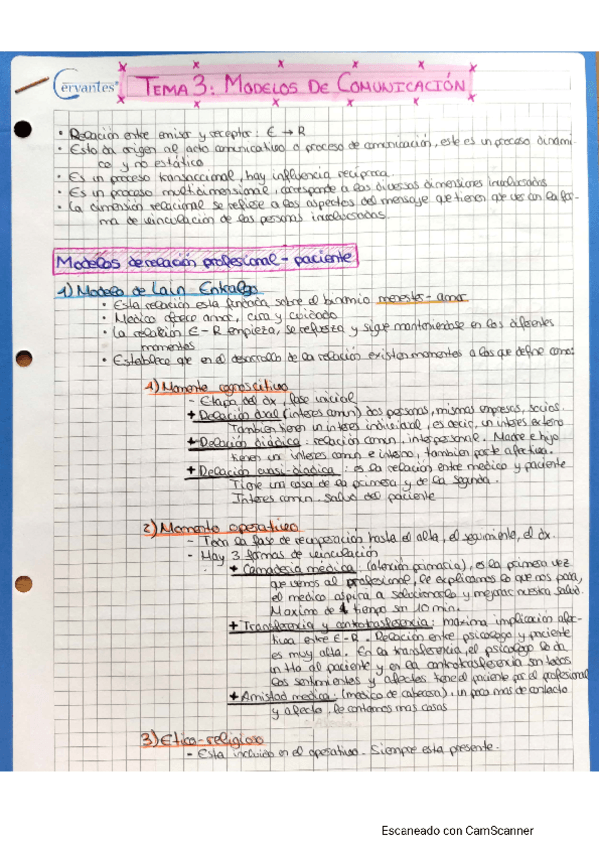 Cervantes
TEMA 3: MODELOS DE COMUNICACIÓN
• Relación entre emisor y receptor: E → R
• Esto da origen al acto comunicativo o proceso de comunicación, este es un proceso dinámi-
co y no estático
• Es un proceso transaccional, hay influencia recíproca.
• Es un proceso multidimensional, corresponde a las diversas dimensiones involucradas
• La dimensión relacional se refiere a los aspectos del mensaje que tienen que ver con la for-
ma de vinculación de las personas involucradas.
Modelos de relación profesional - paciente
1) Modelo de Laín Entralgo
• Esta relación esta fundada sobre el binomio menester-amor
• Medico ofrece amor, cura y cuidado
• La relación E-R empieza, se refuerza y sigue manteniendose en los diferentes
momentos
• Establece que en el desarrollo de la relación existen momentos a los que define como:
1) Momento cognoscitivo
- Etapa del dx, fase inicial
+ Relación dual (interes comun) dos personas, mismas empresas, socios.
Tambien tienen un interes individual, es decir, un interes externo
+ Relación diádica: relación comun, interpersonal. Madre e hijo
tienen un interes comun e interno, tambien parte afectiva.
+ Relación cuasi-diadica: es la relación entre medico y paciente
Tiene una cosa de la primera y de la segunda.
Interes comun. salud del paciente
2) Momento operativo
- Toda la fase de recuperación hasta el alta, el seguimiento, el dx.
- Hay 3 formas de vinculación
+ Camaderia médica: (atención primaria), es la primera vez
que vemos al profesional, le explicamos lo que nos pasa,
el medico aspira a solucionarlo y mejorar nuestra salud.
Maximo de tiempo son 10 min.
+ Transferencia y contratrasferencia: maxima implicación afec-
tiva entre E-R. Relación entre psicologo y paciente
es muy alta. En la transferencia, el psicologo le da
un tto al paciente y en la contratrasferencia son todos
los sentimientos y afectos tiene el paciente por el profesional
+ Amistad medica: (medico de cabecera), un poco mas de contacto
y afecto, le contamos mas cosas
3) Etico-religioso
- Esta incluido en el operativo. Siempre esta presente.
Escaneado con CamScanner